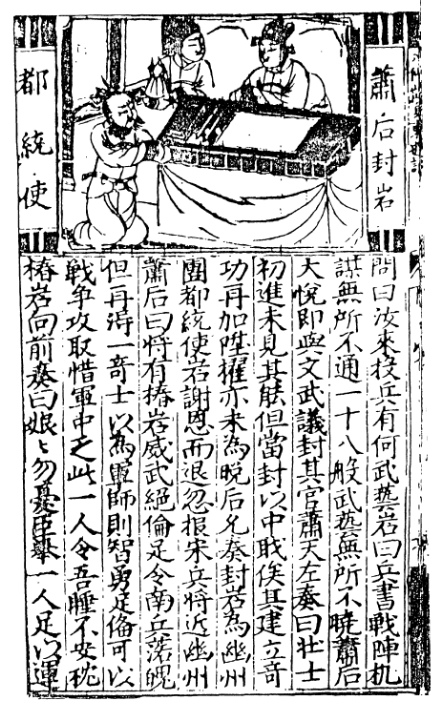 蕭后封岩
都統使
問曰汝來投兵有何武藝岩曰兵書戰陣机
謀無所不通一十八般武藝無所不曉蕭后
大悅即與文武議封其官蕭天左奏曰壯士
初進未見其能但當封以中職俟其建立奇
功再加陞擢亦未為晚后允奏封岩為幽州
團都統使岩謝恩而退忽报宋兵將近幽州
蕭后曰將有椿岩威武絕倫足令南兵落魄
但再得一奇士以為軍師則智勇足俻可以
戰爭攻取惜軍中乏此一人令吾睡不安枕
椿岩向前奏曰娘〻勿憂臣舉一人足以運